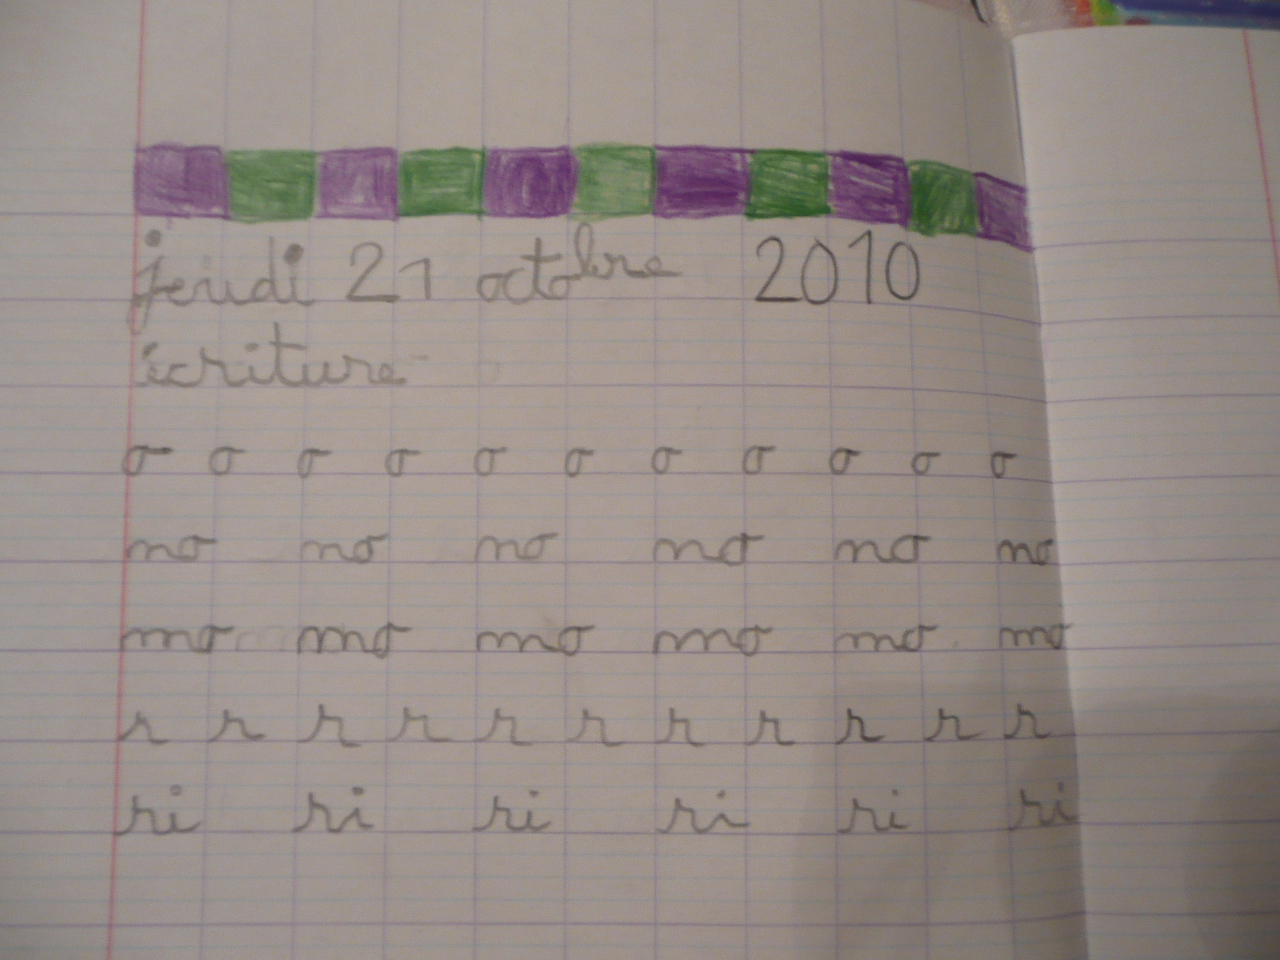 jeudi 21 octobre 2010
écriture
o o o o o o o o o o o
no no no no no no
mo mo mo mo mo mo
r r r r r r r r r r r
ri ri ri ri ri ri